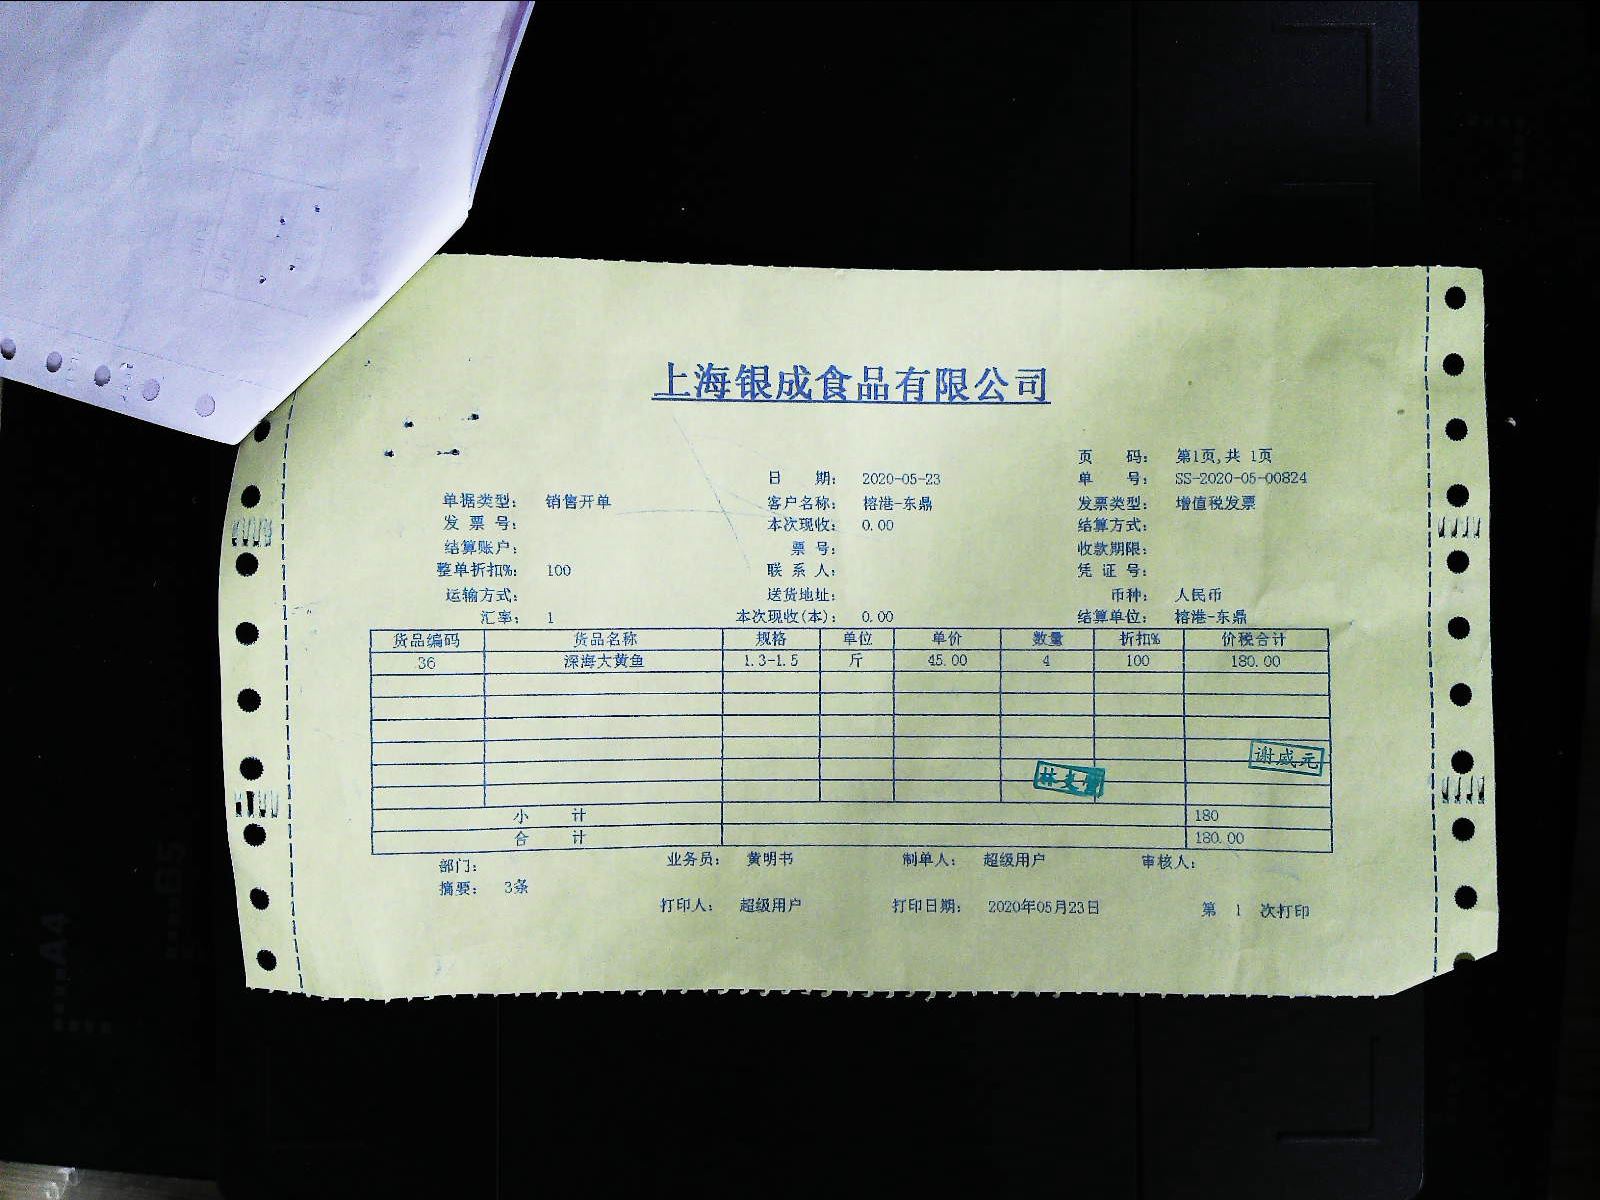 上海银成食品有限公司
页 码: 第1页,共 1页
日 期: 2020-05-23 单 号: SS-2020-05-00824
单据类型: 销售开单 客户名称: 榕港-东鼎 发票类型: 增值税发票
发 票 号: 本次现收: 0.00 结算方式:
结算账户: 票 号: 收款期限:
整单折扣%: 100 联 系 人: 凭 证 号:
运输方式: 送货地址: 币种: 人民币
汇率: 1 本次现收(本): 0.00 结算单位: 榕港-东鼎
货品编码 货品名称 规格 单位 单价 数量 折扣% 价税合计
36 深海大黄鱼 1.3-1.5 斤 45.00 4 100 180.00
谢成元
小 计 180
合 计 180.00
部门: 业务员: 黄明书 制单人: 超级用户 审核人:
摘要: 3条
打印人: 超级用户 打印日期: 2020年05月23日 第 1 次打印
A4